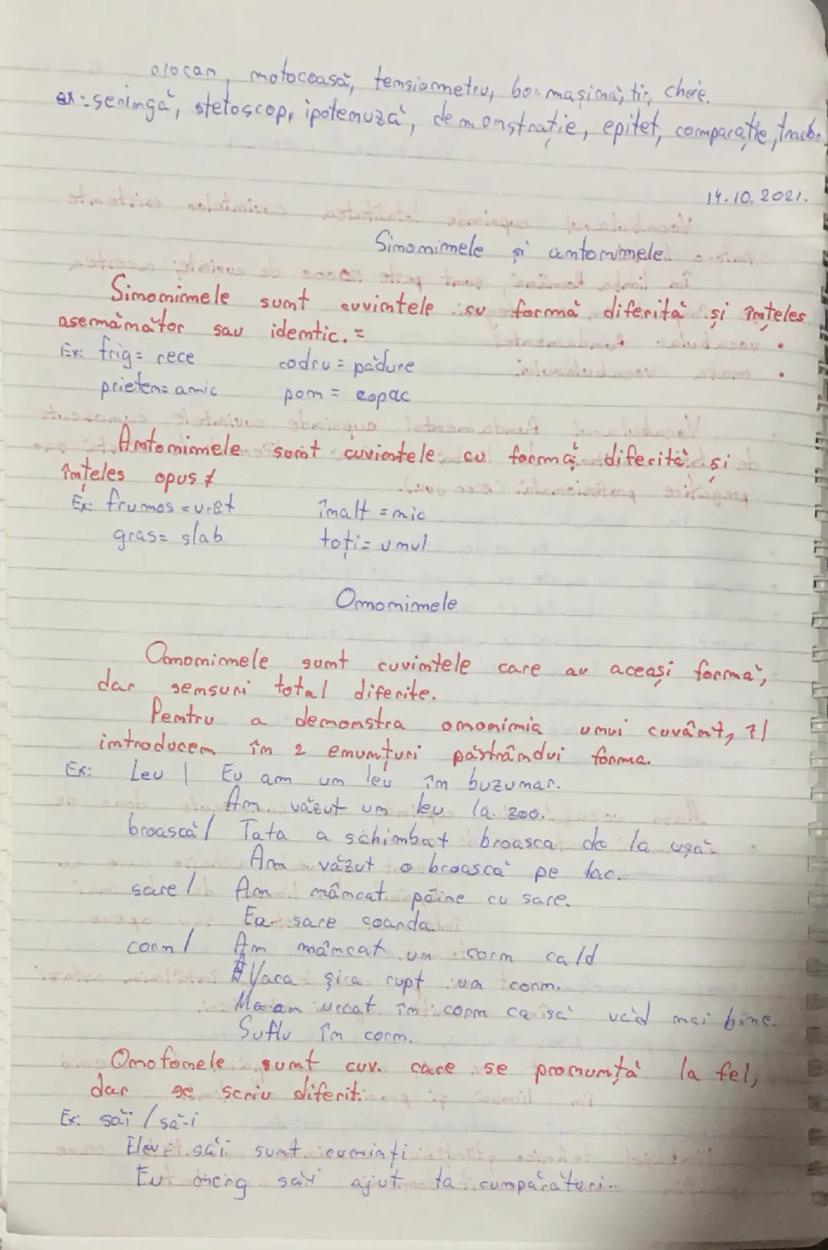 ciocan, motocoasă, tensiometru, bormașină, tir, cheie.
ex: seringă, stetoscop, ipotenuză, demonstrație, epitet, comparație,
14.10.2021.
Sinonimele și antonimele
Sinonimele sunt cuvintele cu formă diferită și înțeles
asemănător sau identic. =
Ex: frig = rece codru = pădure
prieten = amic pom = copac
Antonimele sunt cuvintele cu formă diferită și
înțeles opus ≠
Ex: frumos = urât înalt = mic
gras = slab toți = unul
Omonimele
Omonimele sunt cuvintele care au aceași formă,
dar sensuri total diferite.
Pentru a demonstra omonimia unui cuvânt, îl
introducem în 2 enunțuri păstrându-i forma.
Ex: Leu | Eu am un leu în buzunar.
Am văzut un leu la zoo.
broască / Tata a schimbat broasca de la ușă.
Am văzut o broască pe lac.
sare / Am mâncat pâine cu sare.
Ea sare coarda.
corn / Am mâncat un corn cald
Vaca și-a rupt un corn.
M-am urcat în corn ca să văd mai bine.
Suflu în corn.
Omofonele sunt cuv. care se pronunță la fel,
dar se scriu diferit.
Ex: săi / să-i
Elevi săi sunt cuminți
Eu merg să-i ajut la cumpărături.